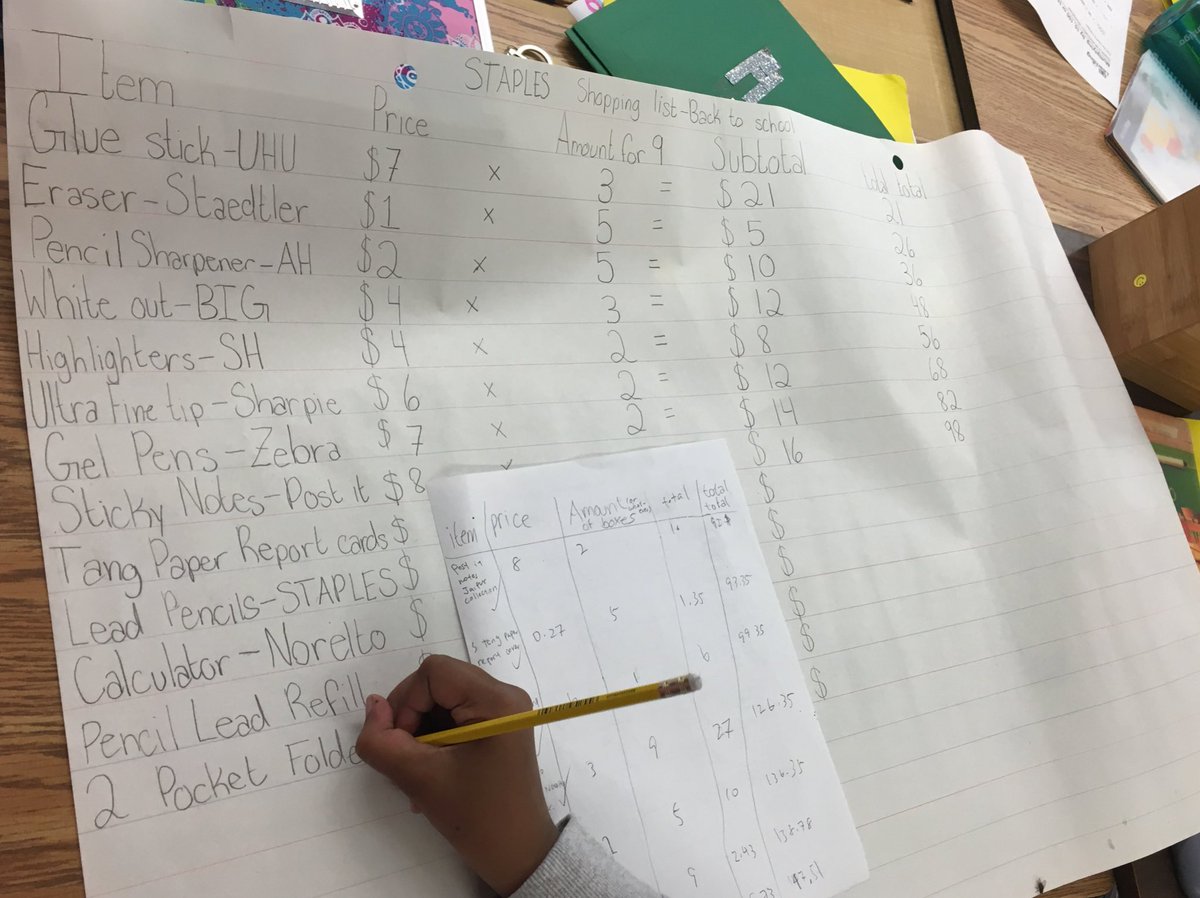 STAPLES Shopping list-Back to school
Item Price Amount for 9 Subtotal total total
Glue stick-UHU $7 x 3 = $21 21
Eraser-Staedtler $1 x 5 = $5 26
Pencil Sharpener-AH $2 x 5 = $10 36
White out-BIG $4 x 3 = $12 48
Highlighters-SH $4 x 2 = $8 56
Ultra Fine tip-Sharpie $6 x 2 = $12 68
Gel Pens-Zebra $7 x 2 = $14 82
Sticky Notes-Post it $8 $16 98
Tang Paper Report cards $ $
Lead Pencils-STAPLES $ $
Calculator-Norelto $ $
Pencil Lead Refill $
2 Pocket Folde $
$
item price Amount of boxes total total total
Post it notes Jaipur collection 8 2
5 Teng paper report 0.27 5 1.35 93.35
6 99.35
9 27 126.35
3 5 10 136.35
2 9 2.43 138.78